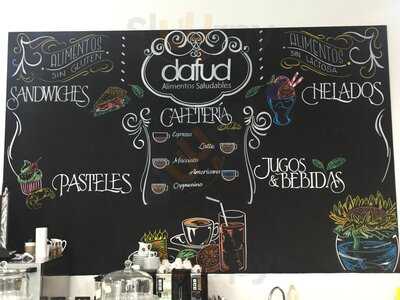 ALIMENTOS
SIN GLUTEN
dafud
Alimentos Saludables
ALIMENTOS
SIN LACTOSA
SANDWICHES
HELADOS
CAFETERIA
Espresso
Latte
Macciato
Americano
Cappuccino
PASTELES
JUGOS
& BEBIDAS